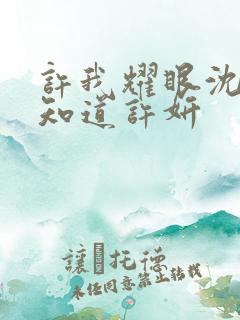 許我耀眼沈
知道許妍
讓�托德
未任同意禁止轉載